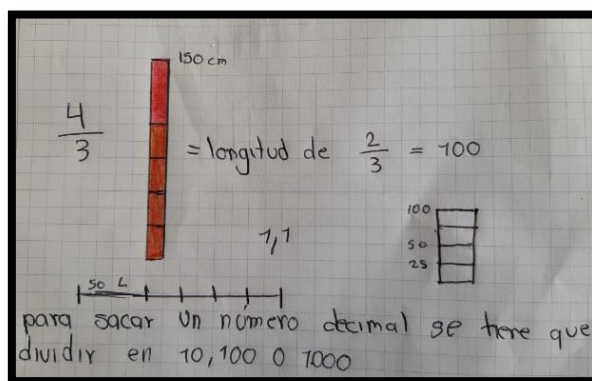 150 cm
4/3
= longitud de 2/3 = 100
100
50
25
1,1
50 L
para sacar un número decimal se tiene que
dividir en 10, 100 o 1000